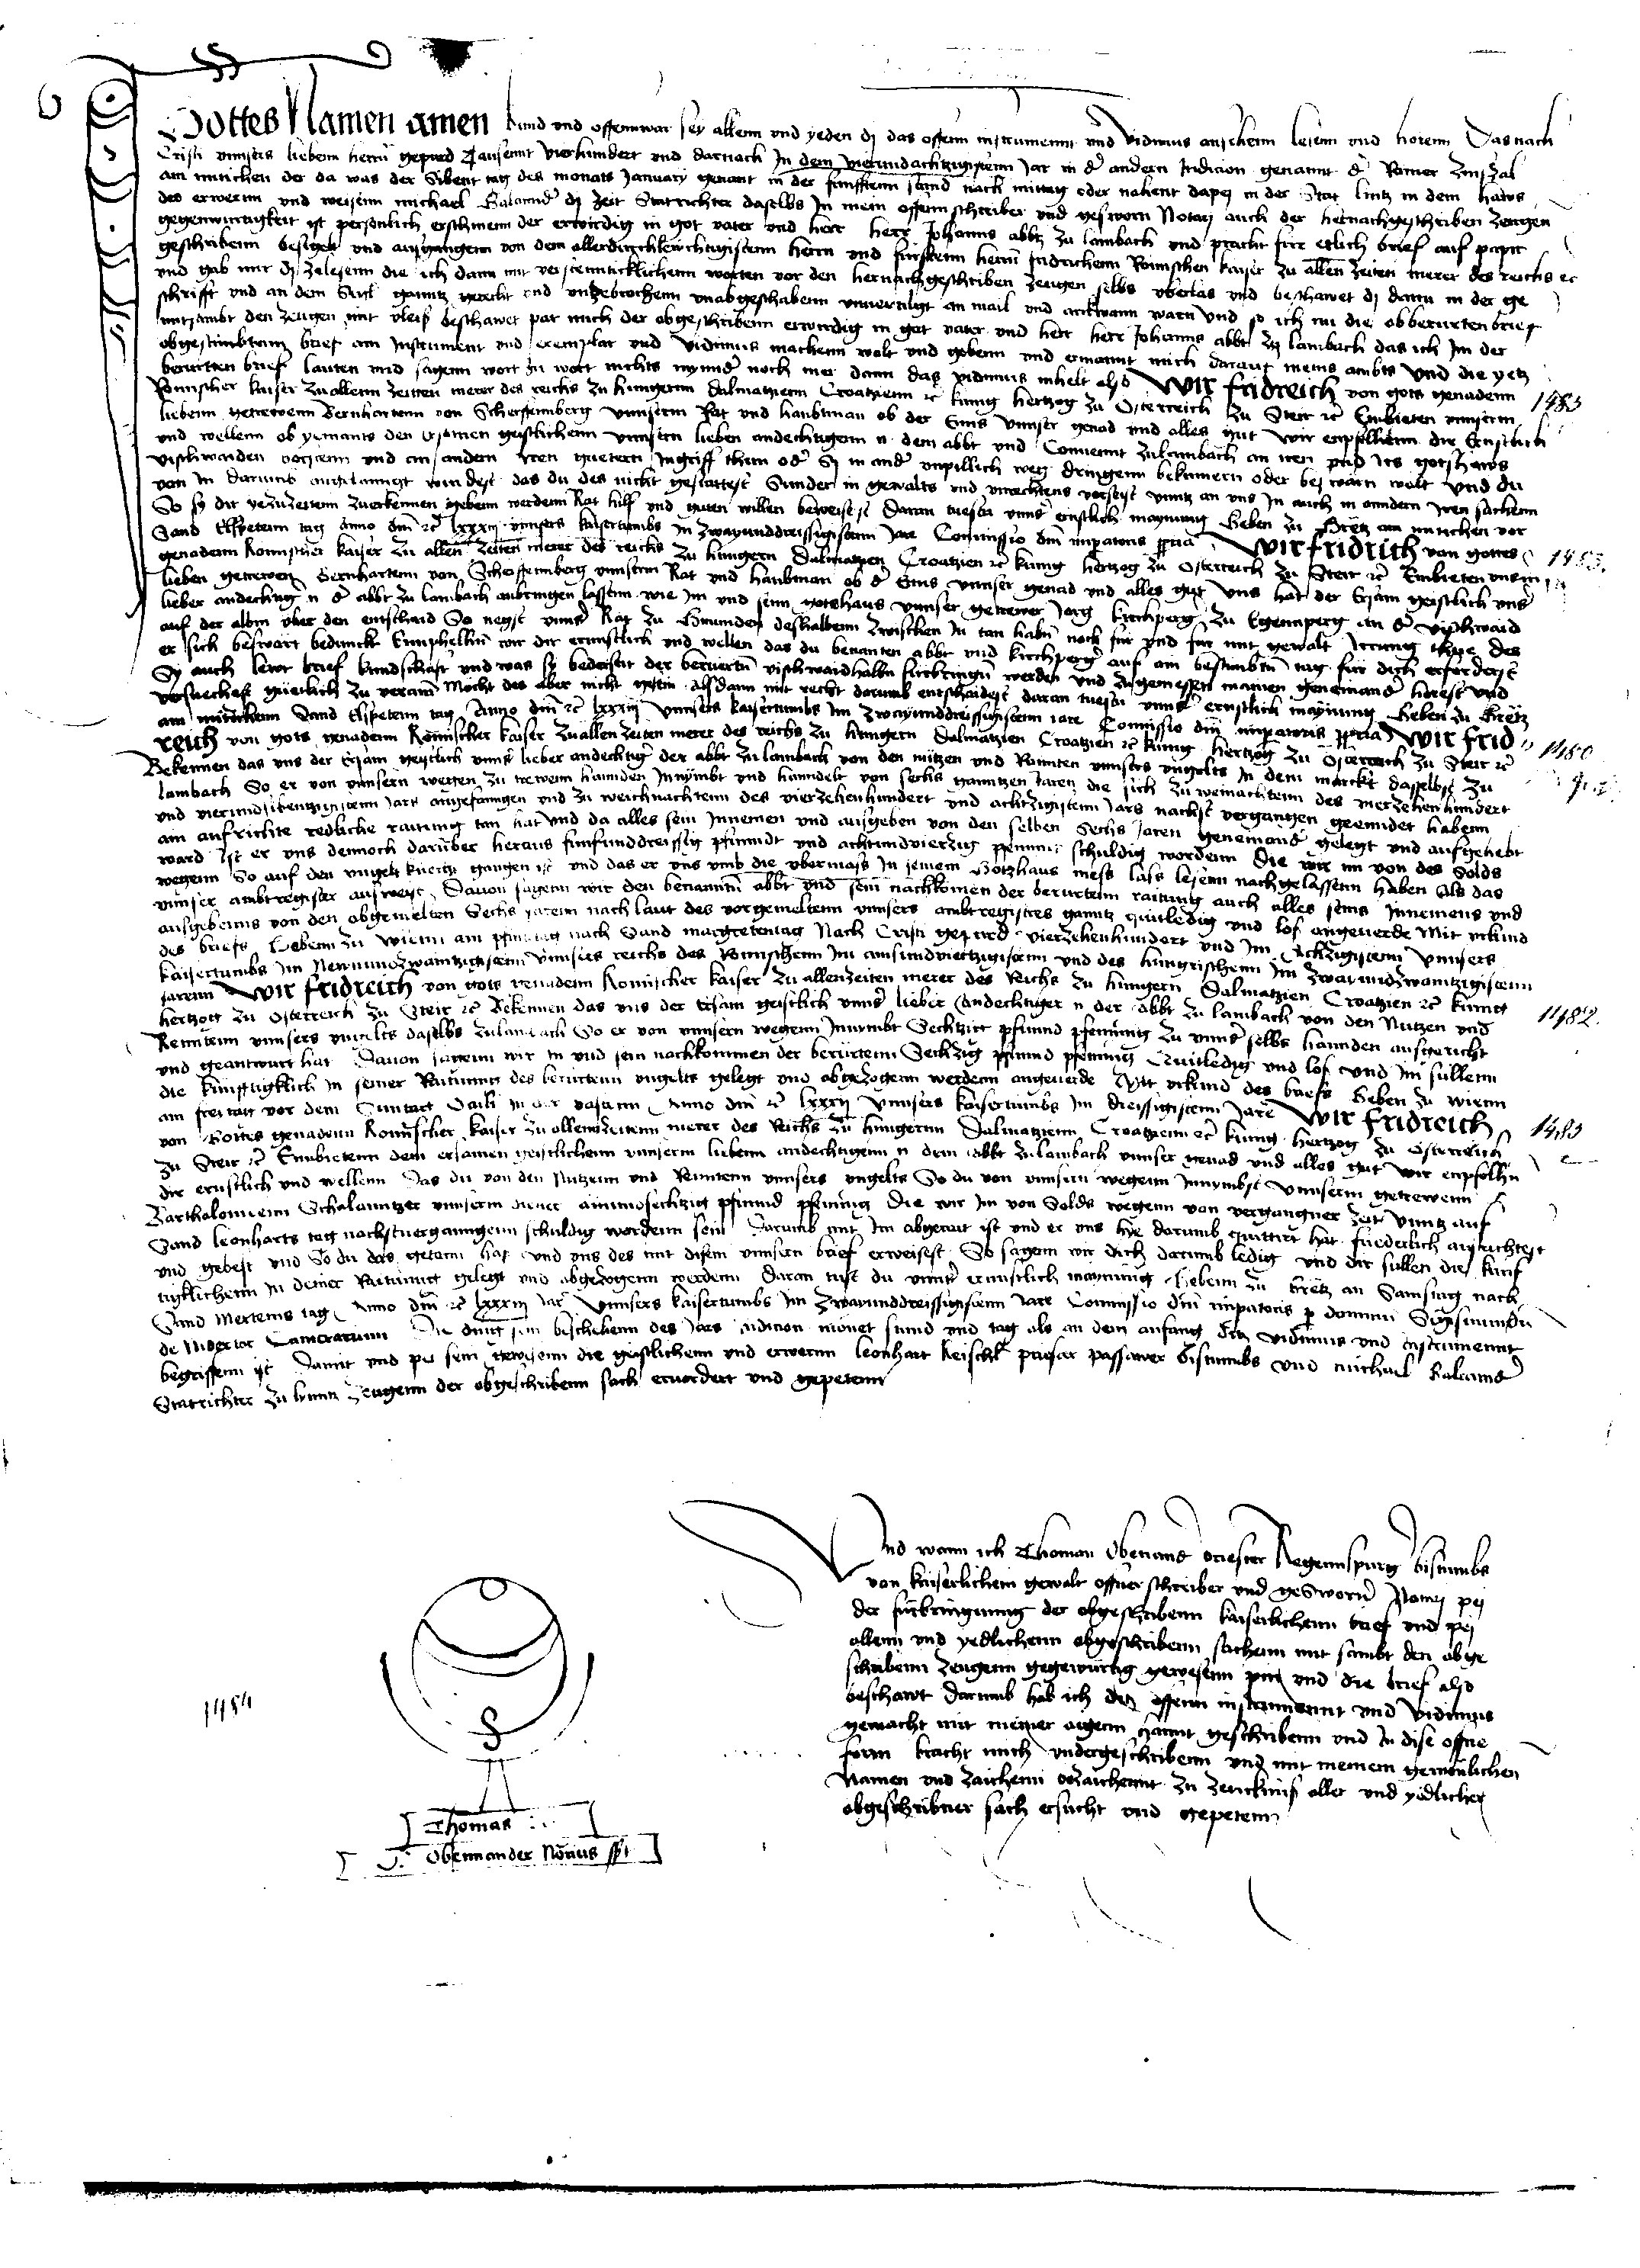 Gottes Namen amen kund und offennwar sey allenn und yeden dj das offenn instrumennt und Vidimus ansehenn lesenn und horenn Das nach
Cristi unnsers liebenn herrn gepurd Tausennt Vierhundert und darnach In dem vierundachtzigistenn Jar in der andern Indicion genannt der Romer Zinszal
am mitichen der da was der Sibent tag des monats January genant in der funfftenn stund nach mittag oder nahent dapej in der Stat lintz in dem haws
des erwerrn und weisenn michael dj zeit Statrichter daselbs In mein offenn schreiber und gesworn Notarj auch der hernachgeschriben zeugen
gegenwurtigkeit ist personlich erschinenn der erwirdig in got vater und herr herr Johanns abbt zu lambach und pracht fur etlich brief auf papir
geschribenn besigelt und ausgangenn von dem allerdurchleuchtigistenn herrn und furstenn herrn fridrichenn Romischen kaiser zu allen zeiten merer des reichs etc
und gab mir dj zelesenn die ich dann mit verstenntlichenn worten vor den hernachgeschriben zeugen selbs uberlas und beschawet dj dann in der ge
schrifft und an dem Sigl ganntz gerecht und unzebrochenn unabgeschabenn unvertilgt an mail und arckwann warn und so ich nu die obberurten brief
mitsambt den zeugen mit vleis beschawet pat mich der obgeschribenn erwirdig in got vater und herr herr Johanns abbt zu lambach das ich Im der
obgestimbtenn brief ain Instrument und exemplar und Vidimus machenn wolt und gebenn und ermannt mich darauf meins ambts Und die yetz
berurten brief lauten und sagenn wort zu wort nichts mynnder noch mer dann das vidimus inhelt also Wir fridreich von gots genadenn
Romischer kaiser zu allenn zeitten merer des reichs zu hungernn dalmatzienn Croatzienn etc kunig hertzog zu Osterreich zu Steir etc Embieten unnserm
liebenn getrewenn Bernhartenn von Scherffennberg unnserm Rat und haubtman ob der Enns unnser genad und alles gut Wir enpfelhenn dir Ernstlich
und wellenn ob yemants den Ersamen geistlichenn unnsern lieben andechtigenn n dem abbt und Convennt zu lambach an iren und irs gotshaws
vischwaiden und an andern iren guetern Ingriff thun oder Sy in ander unpillich weg dringenn bekumern oder beswarn wolt und du
von In darumb angelanngt wurdest das du des nicht gestattest Sunder in gewalts und unrechtens vorseist unntz an uns In auch in anndern iren sachenn
So sy dir yezuzeitenn zuerkennen gebenn werdenn Rat hilf und guten willen beweisest Daran tuestu unnser ernstlich maynung Geben zu Gretz am mitichen vor
Sand Elspetenn tag Anno dm etc lxxxiij unnsers kaisertumbs In zwayunddreissigistenn Jare Commissio dni imperatoris propria Wir fridrich von gottes
genadenn Romischer kaiser zu allen zeiten merer des reichs zu hungern Dalmatzien Croatzien etc kunig hertzog zu Osterreich zu Steir etc Embieten unserm
lieben getrewen Bernhartenn von Scherffennberg unnserm Rat und haubtman ob der Enns unnser genad und alles gut Uns hat der Ersam geistlich unser
lieber andechtig n der abbt zu lambach anbringen lassenn wie Im und seim gotshaus unnser getrewer Jorg kirchperger zu Egennperg an der vischwaid
auf der albm uber den entschaid So negst unnser Rat zu Gmunden deshalbenn zwischen In tan habn noch fur und fur mit gewalt Irrung thue des
er sich beswart bedunckt Emphelhn wir dir ernnstlich und wellen das du benanten abbt und kirchperger auf ain bestimbtn tag fur dich erforderst
Sy auch irer brief kundschaft und was sy bederseit der berurtn vischwaidhalbn furbringen werden und zugemessen mainen genemand horest und
versuechest guetlich zu veraim Mocht des aber nicht gesein alsdann mit recht darumb entschaidest daran tuestu unnser ernnstlich maynung Geben zu Gretz
am mitichenn Sand Elspetenn tag Anno dm etc lxxxiij Unnsers kaisertumbs Im zwayunddreissigistenn iare Comissio dni imperatoris propria Wir frid
reich von gots genadenn Romischer kaiser zu allen zeiten merer des reichs zu hungern dalmatzien Croatzien etc kunig hertzog zu Osterreich zu Steir etc
Bekennen das uns der Ersam geystlich unnser lieber andechtiger der abbt zu lambach von den nutzen und Rannten unnsers ungelts In dem marckt daselbs zu
lambach So er von unnsern wegen zu trewenn hannden Innymbt und hanndelt von sechs ganntzen Jaren die sich zu weinachtenn des vierzehenhundert
und vierundsibentzigistenn Jars angefanngen und zu weichnachtenn des vierzehenhundert und achtzigistenn Jars nachst vergangen geenndet habenn
ain aufrichte redliche raittung tan hat Und da alles sein Innemen und ausgeben von den selben Sechs Jaren genemand gelegt und aufgehebt
ward Ist er uns dennoch daruber heraus funfunddreissig pfunndt und achtundvierzig phening schuldig wordenn Die wir im von des Solds
wegenn So auf den ungelt gangen ist und das er uns umb die ubermass In seinem Gotzhaus mess lass lesenn nachgelassenn haben Als das
unnser ambtregister ausweist Davon sagenn wir den benanntn abbt und sein nachkomen der berurtenn raittung auch alles seins Innemens und
ausgebenns von den obgemelten Sechs jarenn nach laut des vorgemeltenn unnsers ambtregisters ganntz quitledig und los angeverde Mit urkund
des briefs Gebenn zu Wienn am pfintztag nach Sand margretentag Nach Cristi gepurd vierzehenhundert und Im Achtzigistenn Unnsers
kaisertumbs Im Newnundzwaintzigistenn Unnsers reichs des Romischenn Im ainsundviertzigistenn und des hungrischenn Im zwayundzwaintzigistenn
jarenn Wir fridreich von gots genadenn Romischer kaiser zu allenzeiten merer des Reichs zu hungern Dalmatzien Croatzien etc kunig
hertzog zu Osterreich zu Steir etc Bekennen das uns der Ersam geistlich unnser lieber Andechtiger n der abbt zu lambach von den Nutzen und
Renntenn unnsers ungelts daselbs zu lambach So er von unnsern wegenn Innymbt Sechtzig pfunnd phenning zu unnser selbs hannden ausgericht
und geantwurt hat Davon sagenn wir in und sein nachkommen der berurtenn Sechzig pfunnd phenning Quitledig und los Und Im sullenn
die kunfftigklich in seiner Raittung des berurtenn ungelts gelegt und abgezogenn werdenn angeverde Mit urkund des briefs Geben zu Wienn
am freitag vor dem Suntag in der vastenn Anno dm etc lxxxij Unnsers kaisertumbs im dreissigistenn Jare Wir fridreich
von Gottes genadenn Romischer kaiser zu allenn zeitenn merer des Reichs zu hungernn Dalmatzienn Croatzienn etc kunig hertzog zu Osterreich
zu Steir etc Enmbietenn dem ersamen geistlichenn unnserm liebenn andechtigenn n dem abbt zu lambach unnser genad und alles gut Wir enpfelhn
dir ernstlich und wellenn Das du von den Nutzenn und Renntenn unnsers ungelts So du von unnsern wegenn Innymbst Unnserm getrewenn
Bartholomeenn Schalanntzer unnserm diener ainundsechzig pfunnd phenning Die wir Im von Solds wegenn von vergangner zeit Unntz auf
Sand leonharts tag nachstverganngenn schuldig wordenn sein Darumb mit Im abgerait ist und er uns hye darumb quittirt hat fuederlich ausrichtest
und gebest und So du das getann hast und uns des mit disem unnsern brief erweisest So sagenn wir dich darumb ledig und dir sullen die kunf
tigklichenn in deiner Raittung gelegt und abgezogenn werdenn Daran tust du unnser ernnstlich maynung Gebenn zu Gretz an Sambstag nach
Sand Mertenns tag Anno dm etc lxxxiij Jar Unnsers kaisertumbs Im zwayunddreissigistenn Jare Commissio dni imperatoris per dominum Sigismundu
de Camerarium Die ding sein beschehenn des Jars indicion monet stund und tag als an dem anfang ditz vidimus und instrumennt
begriffenn ist Damit und pei sein gewesenn die geistlichenn und erwernn leonhart priester passawer Bistumbs und michael
Statrichter zu lynntz zeugenn der obgeschribenn sach ervordert und gepetenn
1483
1483.
1480
1482.
1483
Und wann ich Thoman Obernannder briester Regennspurger bistumbs
von kaiserlichem gewalt offner schreiber und gesworner Notarj pej
der furbringunng der obgeschribenn kaiserlichenn brief und pej
allenn und yedlichenn obgeschribenn sachenn mit sambt den obge
schribenn zeugenn gegewurtig gewesenn pin und die brief also
beschawt Darumb hab ich ditz offenn instrumennt und Vidimus
gemacht mit meiner aigenn hannt geschribenn und in dise offne
form bracht mich undergeschribenn und mit meinem gewonlichen
Namen und zaichenn bezaichennt zu zewcknuss aller und yedlicher
obgeschribner sach ersucht und gepetenn
1484
Thomas
Obernnander Notarius sst